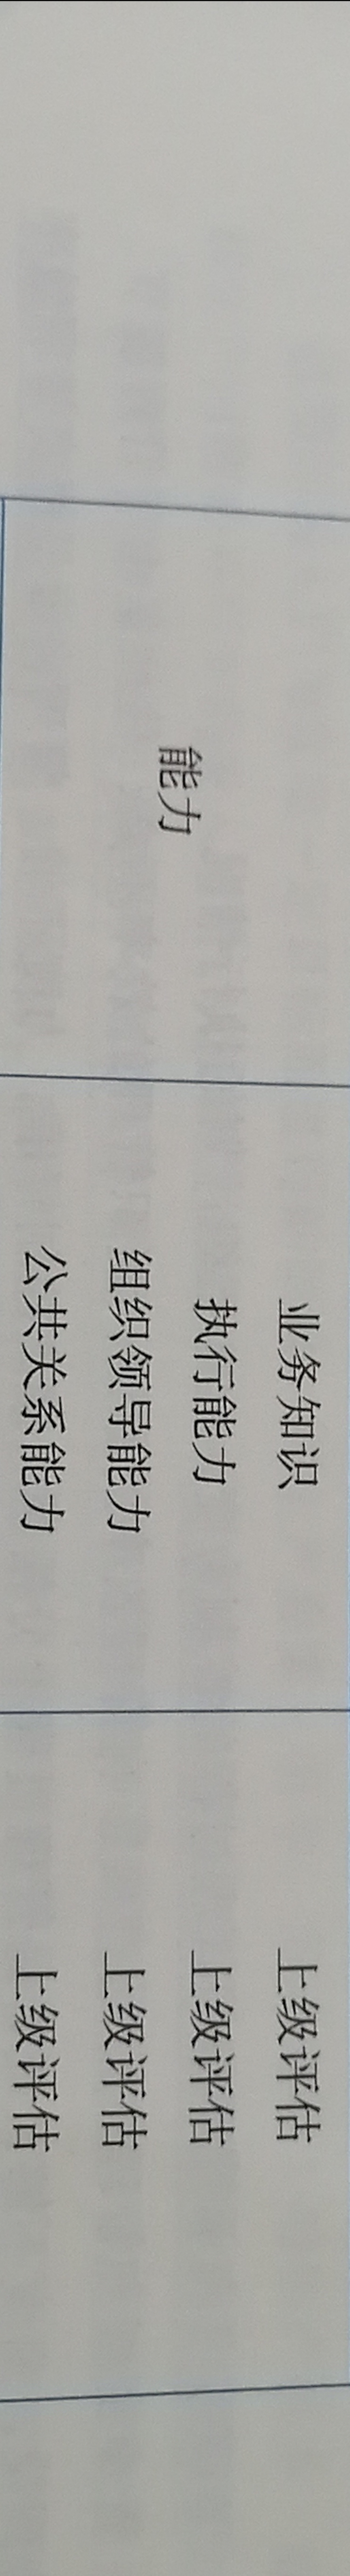 能力
业务知识 上级评估
执行能力 上级评估
组织领导能力 上级评估
公共关系能力 上级评估